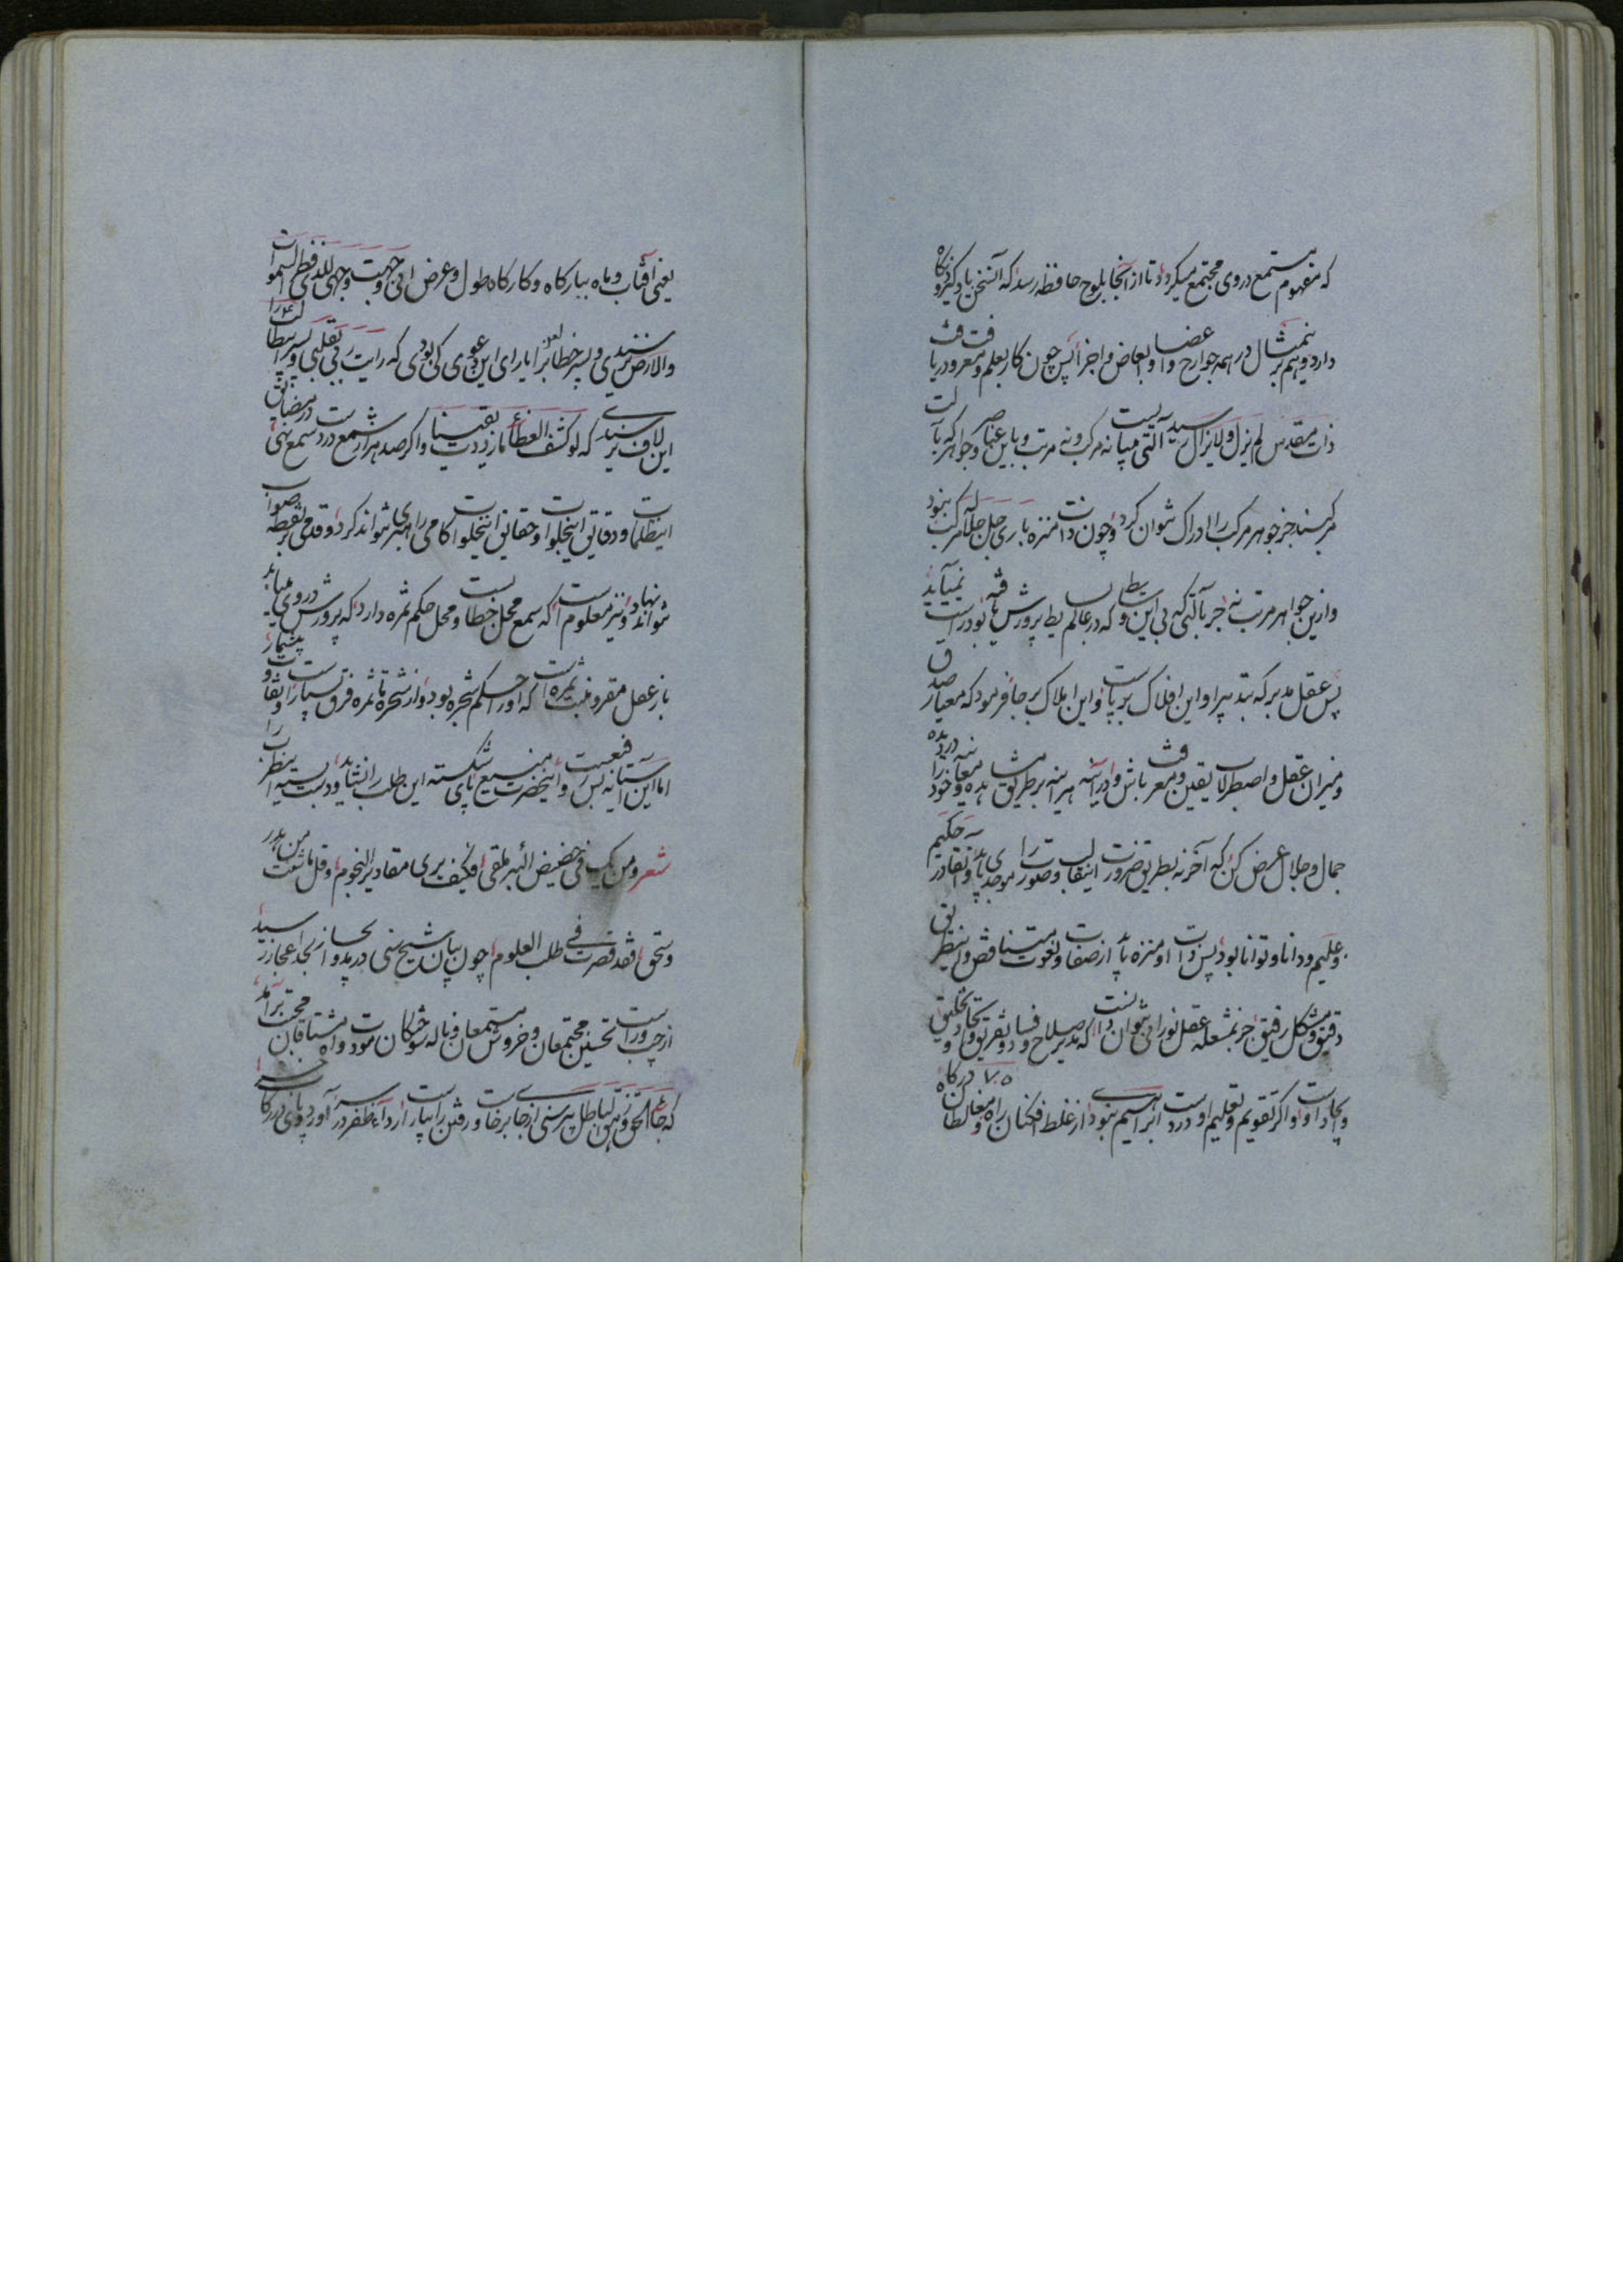 که مفهوم مستمع در وی مجتمع میگردد تا از آنجا بلوح حافظه رسد که آن سخن یاد گیرد و نگاه
دارد و هم برین مثال در همه جوارح و اعضا و ابعاض و اجزا پس چون کار بعلم و معرفت و دریافت
ذات مقدس لم یزل و لایزال رسید آلتی میبایست نه مرکب و نه مرتب و باین عناصر و جواهر که بآلت
مرکبند جز جوهر مرکب را ادراک نتوان کرد و چون ذات منزه باری جل جلاله مرکب نبود
و ازین جواهر مرتب نه جز بآلتی که بی این وسایط که در عالم بسایط پرورش یافته بود راست نمیآید
پس عقل مدبر که بتدبیر او این افلاک بر پاست و این املاک بر جا فرمود که معیار صدق
و میزان عقل و اصطرلاب یقین و معرفت باش و در آینه هر آینه بر طریق مشاهده و معاینه خود را در دیده
جمال و جلال عرض کن که آخر نه بطریق ضرورت این قالب و صورت را موجدی باید و نقادر نه حکیم
و علیم و دانا و توانا بود پس ذات او منزه باید از صفات و نعوت متناقض و این طریق
دقیق و مشکل رفیق جز بمشعله عقل نورانی نتوان دانست که مدبر صلاح و فساد و تفریق و اتحاد و تخلیق
و ایجاد اوست و اگر تقویم و تعلیم اوست در درد ابراهیمی نبود از غلط افکنان راه و مغالطان درگاه
یعنی آفتاب و ماه ببارگاه و کارگاه طول و عرض انی وجهت وجهی للذی فطر السموات
والارض نرسیدی و پسر خطاب را یارای این دعوی کی بودی که رایت ربی بقلبی و پسر ابیطالب را
این لاف نرسیدی که لو کشف الغطاء ما ازددت یقینا و اگر صد هزار شمع در دست سمع نهی در مضایق
این ظلمات و دقایق این خلوات و حقایق این خلوات گامی را هبری نتواند کرد و قدمی بر نقطه صواب
نتواند نهاد و نیز معلومست که سمع محل خطابست و محل حکم ثمره دارد که پرورش در وی مییابد
باز عقل مقر و منبت ثمره است که او را حکم شجره بود و از شجره تا ثمره فرق بسیار است و تفاوت بیشمار
اما این آستانه بس رفیعست و این حضرت بس منیع پای شکسته این طلب را نشاید و دست بسته این نظر را
شعر و من یک فی حضیض البئر ملقی فکیف یری مقادیر النجوم و قل ما شئت من هدر
و سخف فقد قصرت فی طلب العلوم چون بیان شیخ سنی درین مد و از بحار بجد اعجاز رسید
از چپ و راست تحسین مجتمعان و خروش مستمعان و ناله سوختگان مودت و آه مشتاقان محبت برآمد
که جاء الحق و زهق الباطل پیر سنی از جا برخاست و رفتن را بیاراست سر از در آن ظفر در آورد و پای در رکاب